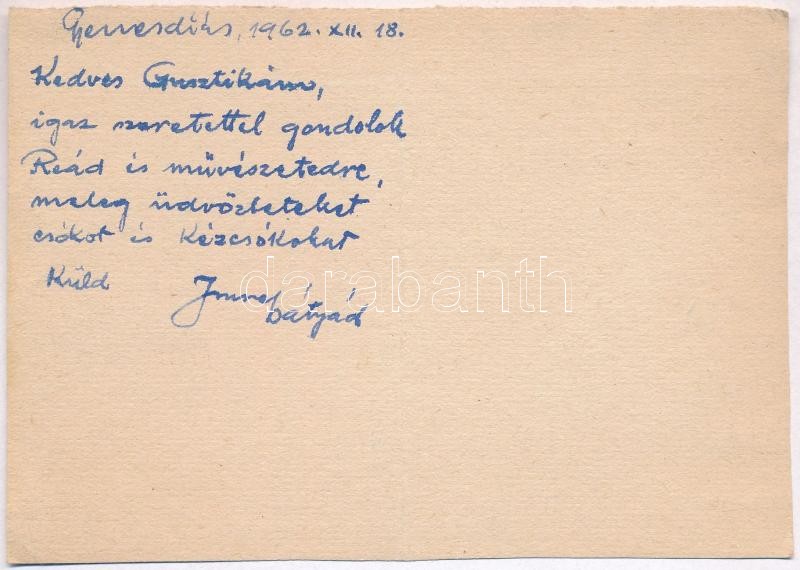 Gyenesdiás, 1962. XII. 18.
Kedves Gusztikám,
igaz szeretettel gondolok
Reád és művészetedre,
meleg üdvözleteket
csókot és kézcsókokat
Küld
Imre bátyád
darabanth